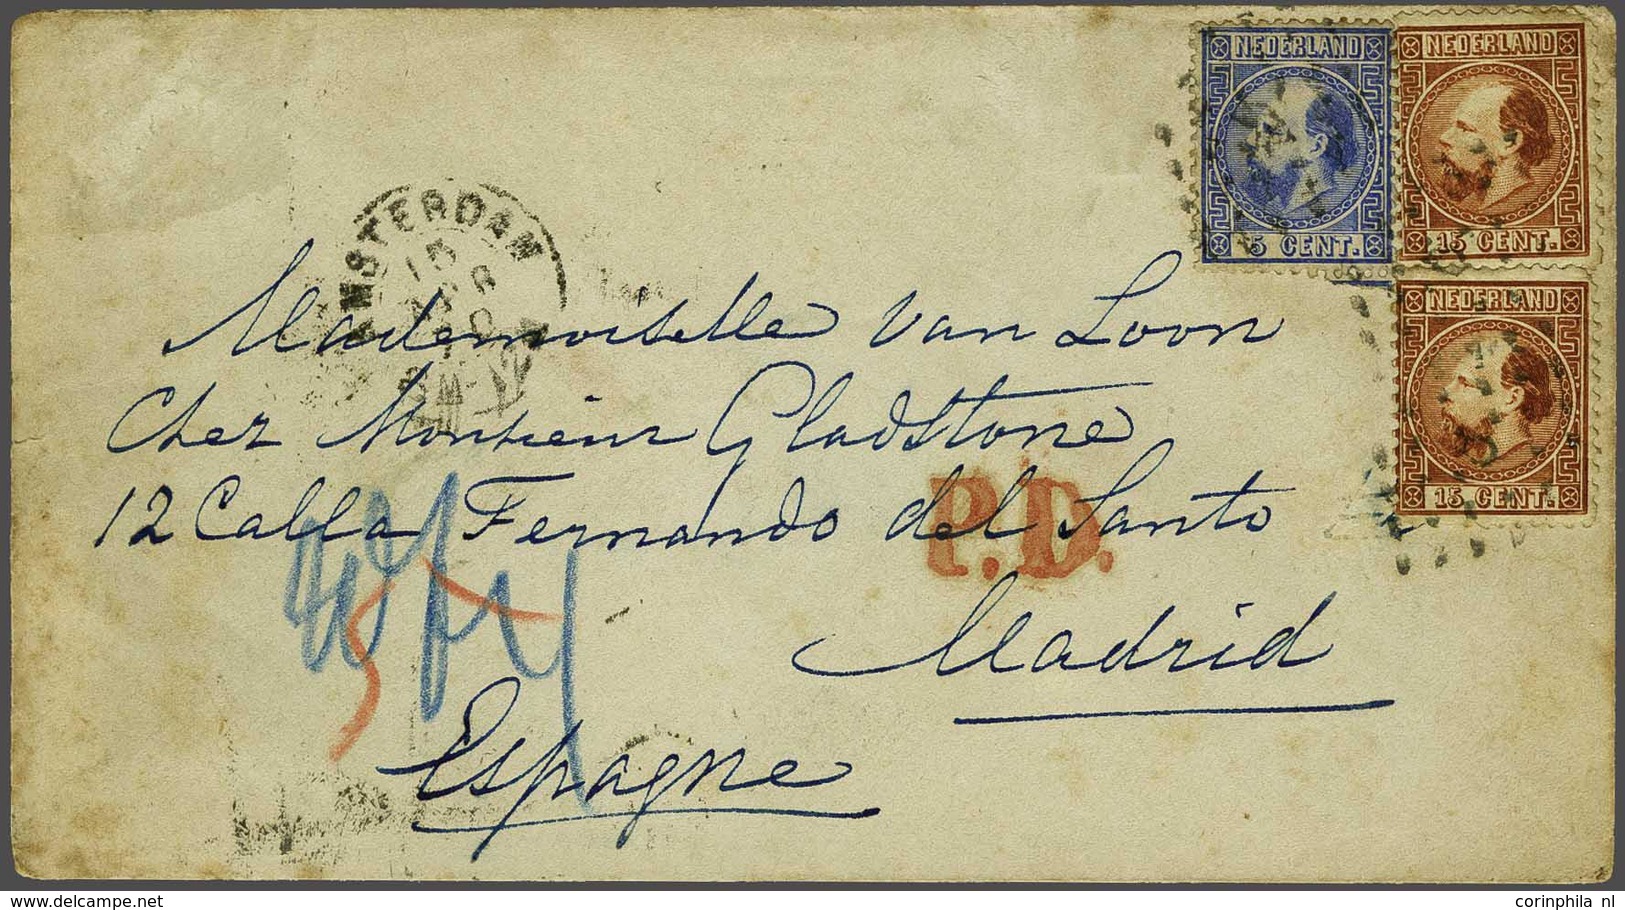 NEDERLAND
5 CENT.
NEDERLAND
15 CENT.
NEDERLAND
15 CENT.
AMSTERDAM
10
Mademoiselle van Loon
Chez Monsieur Gladstone
12 Calla Fernando del Santo
P.D.
Madrid
Espagne
corinphila nl